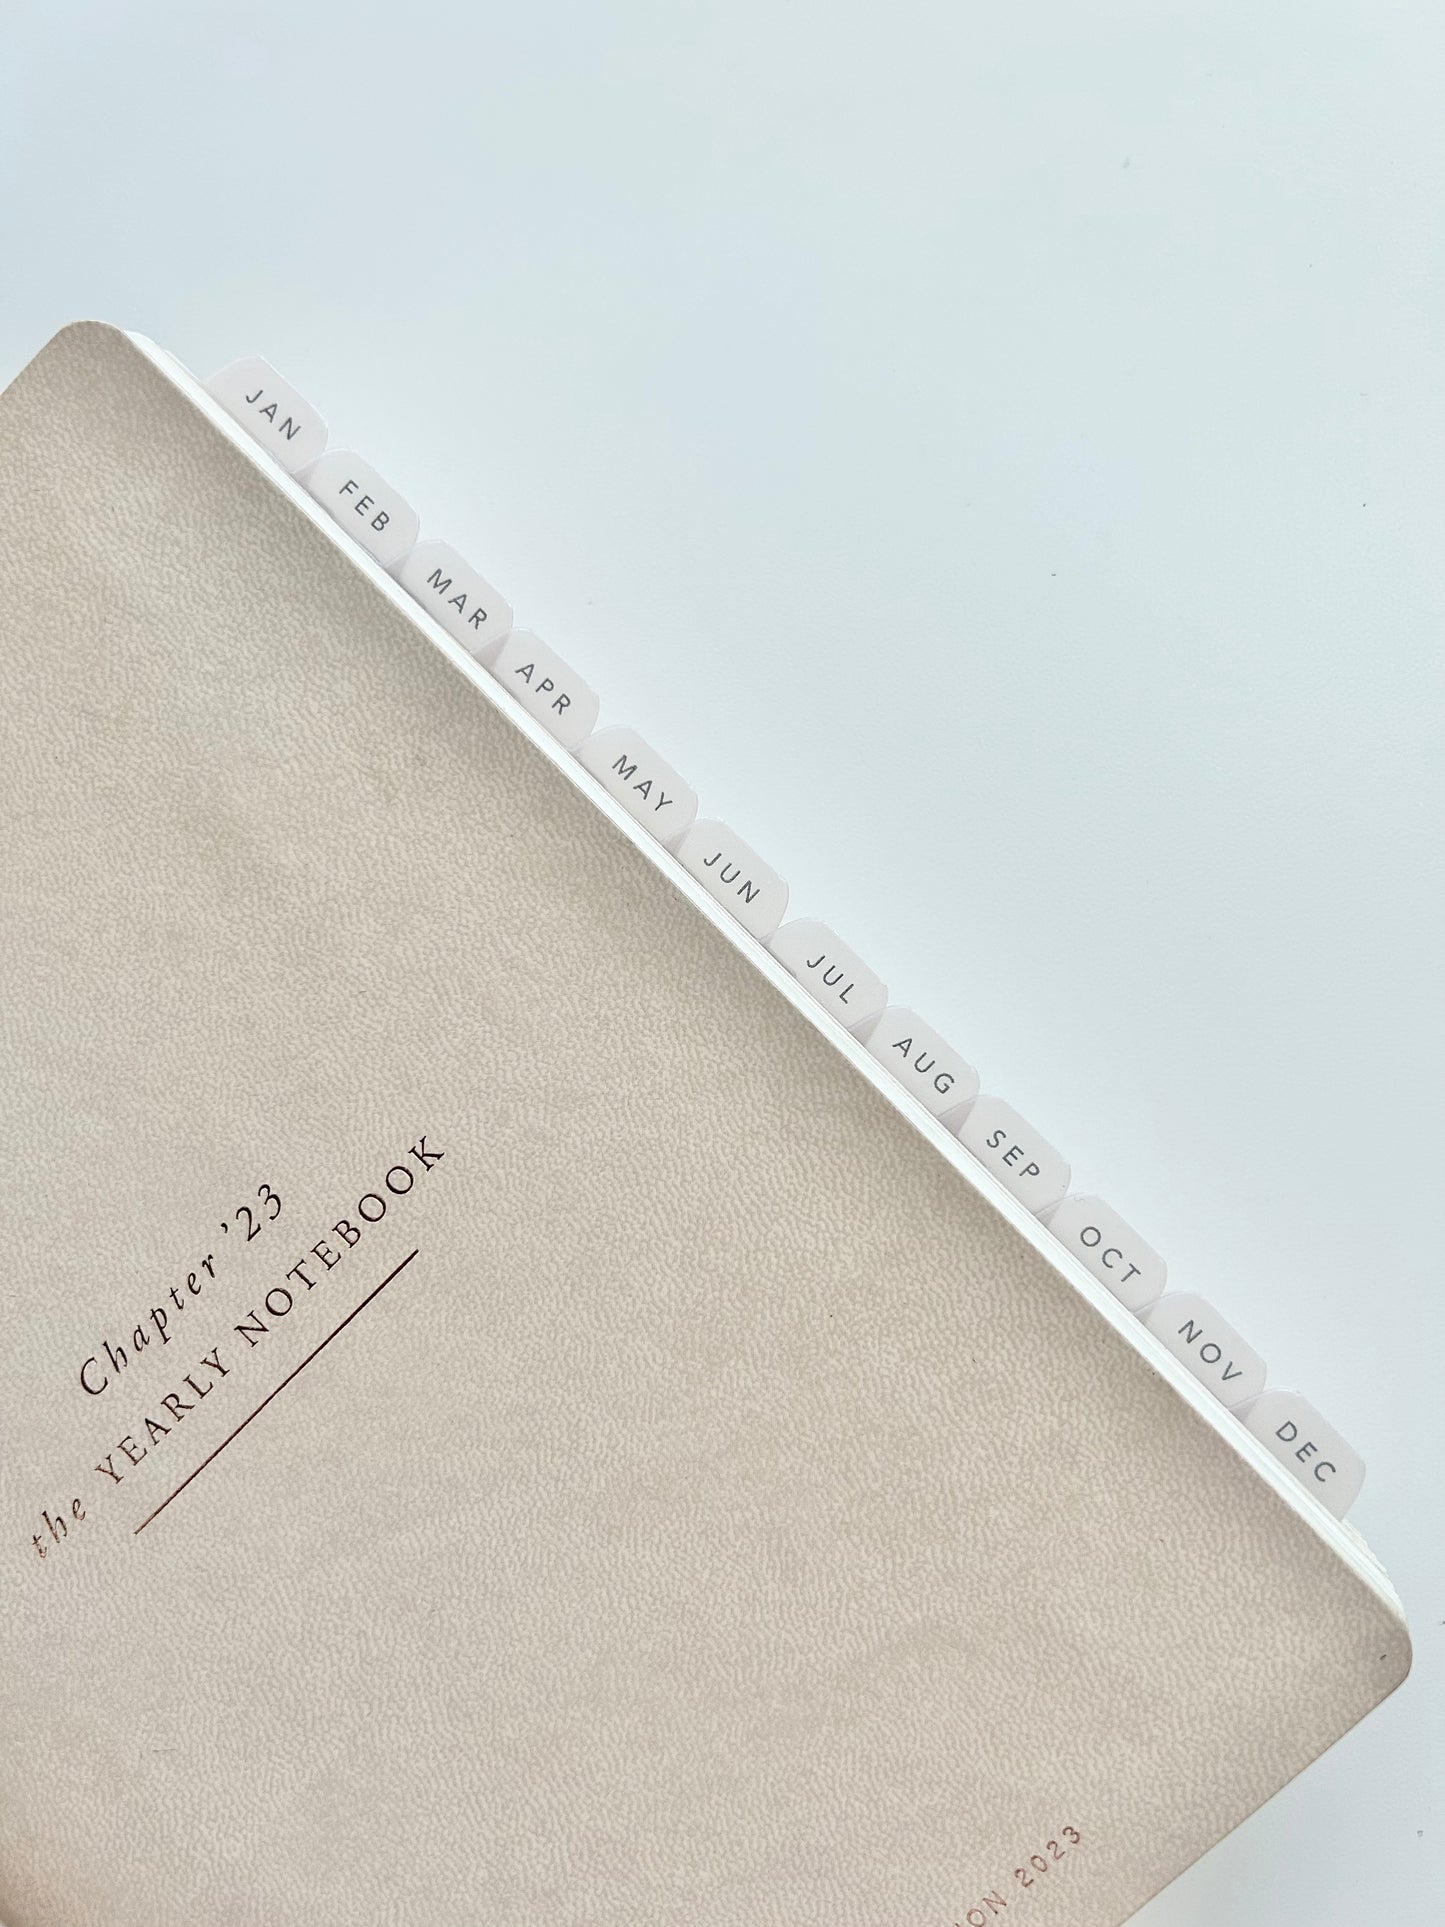 JAN
FEB
MAR
APR
MAY
JUN
JUL
AUG
SEP
OCT
NOV
DEC
Chapter ’23
the YEARLY NOTEBOOK
2023